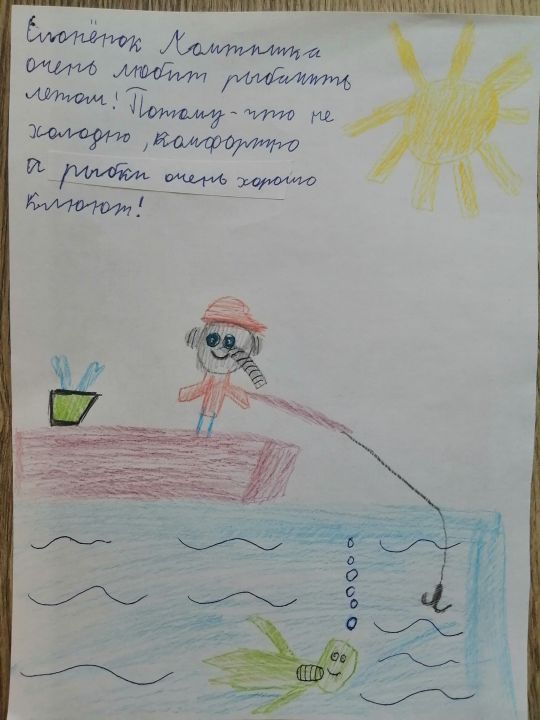 Слонёнок Хоттышка
очень любит рыбачить
летом! Потому-что не
холодно, комфортно
и рыбки очень хорошо
клюют!